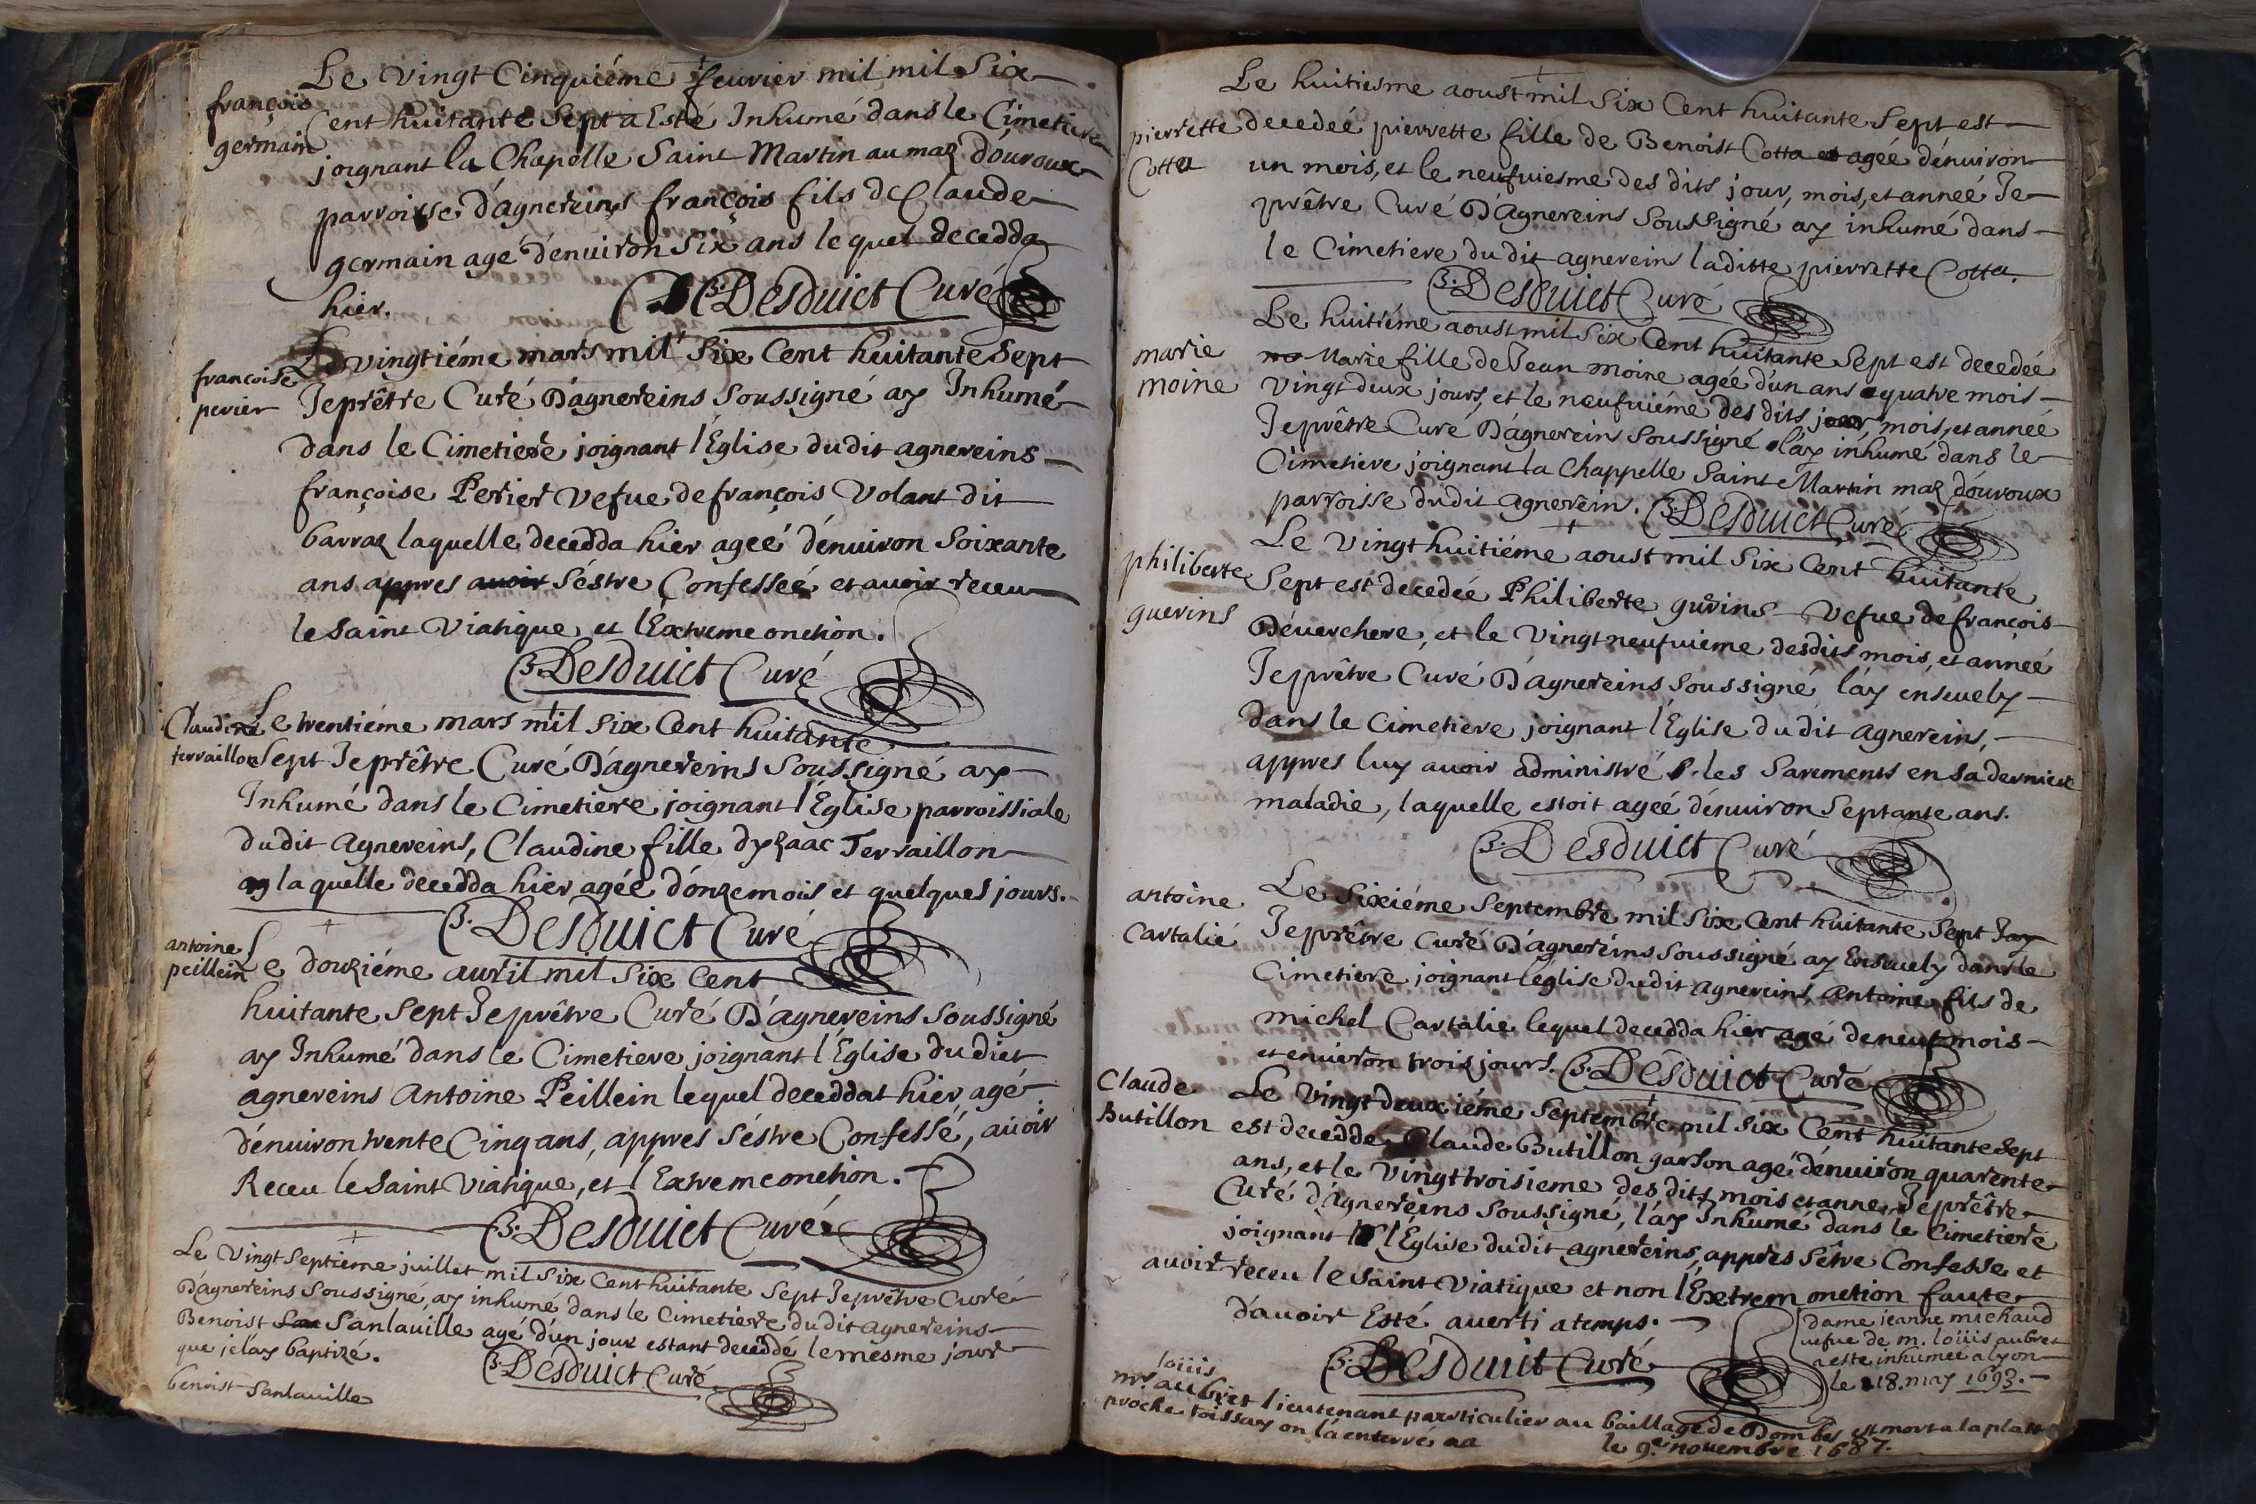 Le vingt Cinquiéme feurier mil mil Six
françois
germain
Cent huitante Sept a Esté Inhumé dans le Cimetiere
joignant la Chapelle Saint Martin au maz d'ouroux
parroisse d'agnereins françois fils de Claude
germain agé d'enuiron six ans le quel decedda
hier. B. Desduict Curé
Le vingtiéme mars mil Six Cent huitante Sept
francoise
perier
Je prêtre Curé D'agnereins Soussigné ay Inhumé
dans le Cimetiere joignant l'Eglise dudit agnereins
françoise Perier Vefue de françois Volant dit
barraz laquelle decedda hier ageé d'enuiron Soixante
ans appres auoir s'éstre Confesseé et auoir receu
le Saint Viatique et l'Extreme onction.
B. Desduict Curé
Claudine
terraillon
Le trentiéme mars mil Six Cent huitante
Sept Je prêtre Curé D'agnereins Soussigné ay
Inhumé dans le Cimetiere joignant l'Eglise parroissiale
dudit Agnereins, Claudine fille d'yzaac Terraillon
laquelle decedda hier agée d'onze mois et quelques jours.
B. Desduict Curé
antoine
peillein
Le douziéme auril mil Six Cent
huitante Sept Je prêtre Curé D'agnereins Soussigné
ay Inhumé dans le Cimetiere joignant l'Eglise du dict
agnereins Antoine Peillein lequel deceddat hier agé
d'enuiron trente Cinq ans, appres s'éstre Confessé, auoir
Receu le Saint Viatique, et l'Extreme onction.
B. Desduict Curé
Le Vingt Septieme juillet mil Six Cent huitante Sept Je prêtre Curé
D'agnereins Soussigné ay inhumé dans le Cimetiere dudit agnereins
Benoist San Sanlauille agé d'un jour estant deceddé le mesme jour
que je l'ay baptizé. B. Desduict Curé
benoist Sanlauille
Le huitiesme aoust mil Six Cent huitante Sept est
pierrette
Cotta
decedeé pierrette fille de Benoist Cotta et ageé d'enuiron
un mois, et le neufuiesme des dits jour, mois, et anneé Je
prêtre Curé D'Agnereins Soussigné ay inhumé dans
le Cimetiere du dit agnereins laditte pierrette Cotta.
B. Desduict Curé
Le huitiéme aoust mil Six Cent huitante Sept est decedeé
marie
moine
Marie fille de Jean moine ageé d'un ans quatre mois
vingt deux jours, et le neufuiéme des dits jour, mois, et anneé
Je prêtre Curé D'agnereins Soussigné l'ay inhumé dans le
Cimetiere joignant la Chappelle Saint Martin maz d'ouroux
parroisse dudit agnerein. B. Desduict Curé
philiberte
guerins
Le Vingt huitiéme aoust mil Six Cent huitante
Sept est decedeé Philiberte gurins Vefue de françois
Déuerchere, et le Vingt neufuieme desdits mois, et anneé
Je prêtre Curé D'agnereins Soussigné l'ay enseuely
dans le Cimetiere joignant l'Eglise du dit Agnereins,
appres luy auoir administré les Sarements en sa derniere
maladie, laquelle estoit ageé d'enuiron Septante ans.
B. Desduict Curé
antoine
Cartalié
Le Sixiéme Septembre mil Six Cent huitante Sept Jay
Je prêtre Curé D'agnereins Soussigné ay Enseuely dans le
Cimetiere joignant l'église dudit agnereins Antoine fils de
michel Cartalie lequel decedda hier agé de neuf mois
et enuiron trois jours. B. Desduict Curé
Claude
Butillon
Le Vingt deuxiéme Septembre mil Six Cent huitante Sept
est decedde Claude Butillon garson agé d'enuiron quarente
ans, et le Vingt troisieme des dits mois et anne Je prêtre
Curé d'Agnereins Soussigné, l'ay Inhumé dans le Cimetiere
joignant l'Église dudit agnereins, appres s'être Confesse et
auoir receu le Saint Viatique et non l'Extrem onction faute
d'auoir Esté auerti a temps.
B. Desduict Curé
dame jeanne michaud
uefue de m. loüis aubret
a este inhumeé a lyon
le 18. may 1693.
loüis
mr. aubret lieutenant particulier au baillage de Dombes est mort a la platte
proche toissay on l'a enterré
le 9.e nouembre 1687.